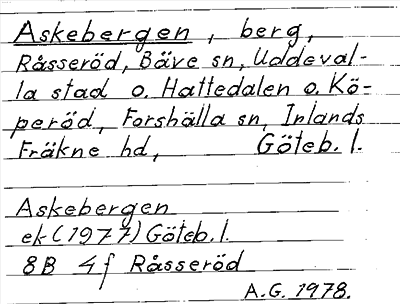 Askebergen, berg,
Råsseröd, Bäve sn, Uddeval-
la stad o. Hattedalen o. Kö-
peröd, Forshälla sn, Inlands
Fräkne hd, Göteb. l.
Askebergen
ek (1977) Göteb. l.
8B 4f Råsseröd
A.G. 1978.